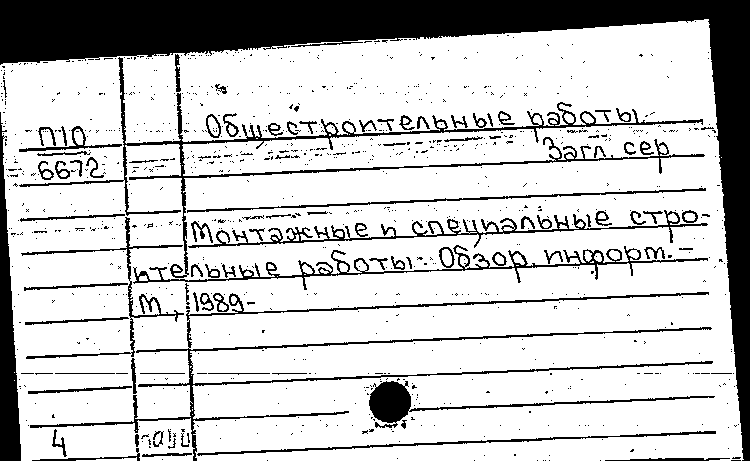 П10
6672
Общестроительные работы.
Загл. сер
Монтажные и специальные стро-
ительные работы: Обзор. информ. -
М., 1989-
4